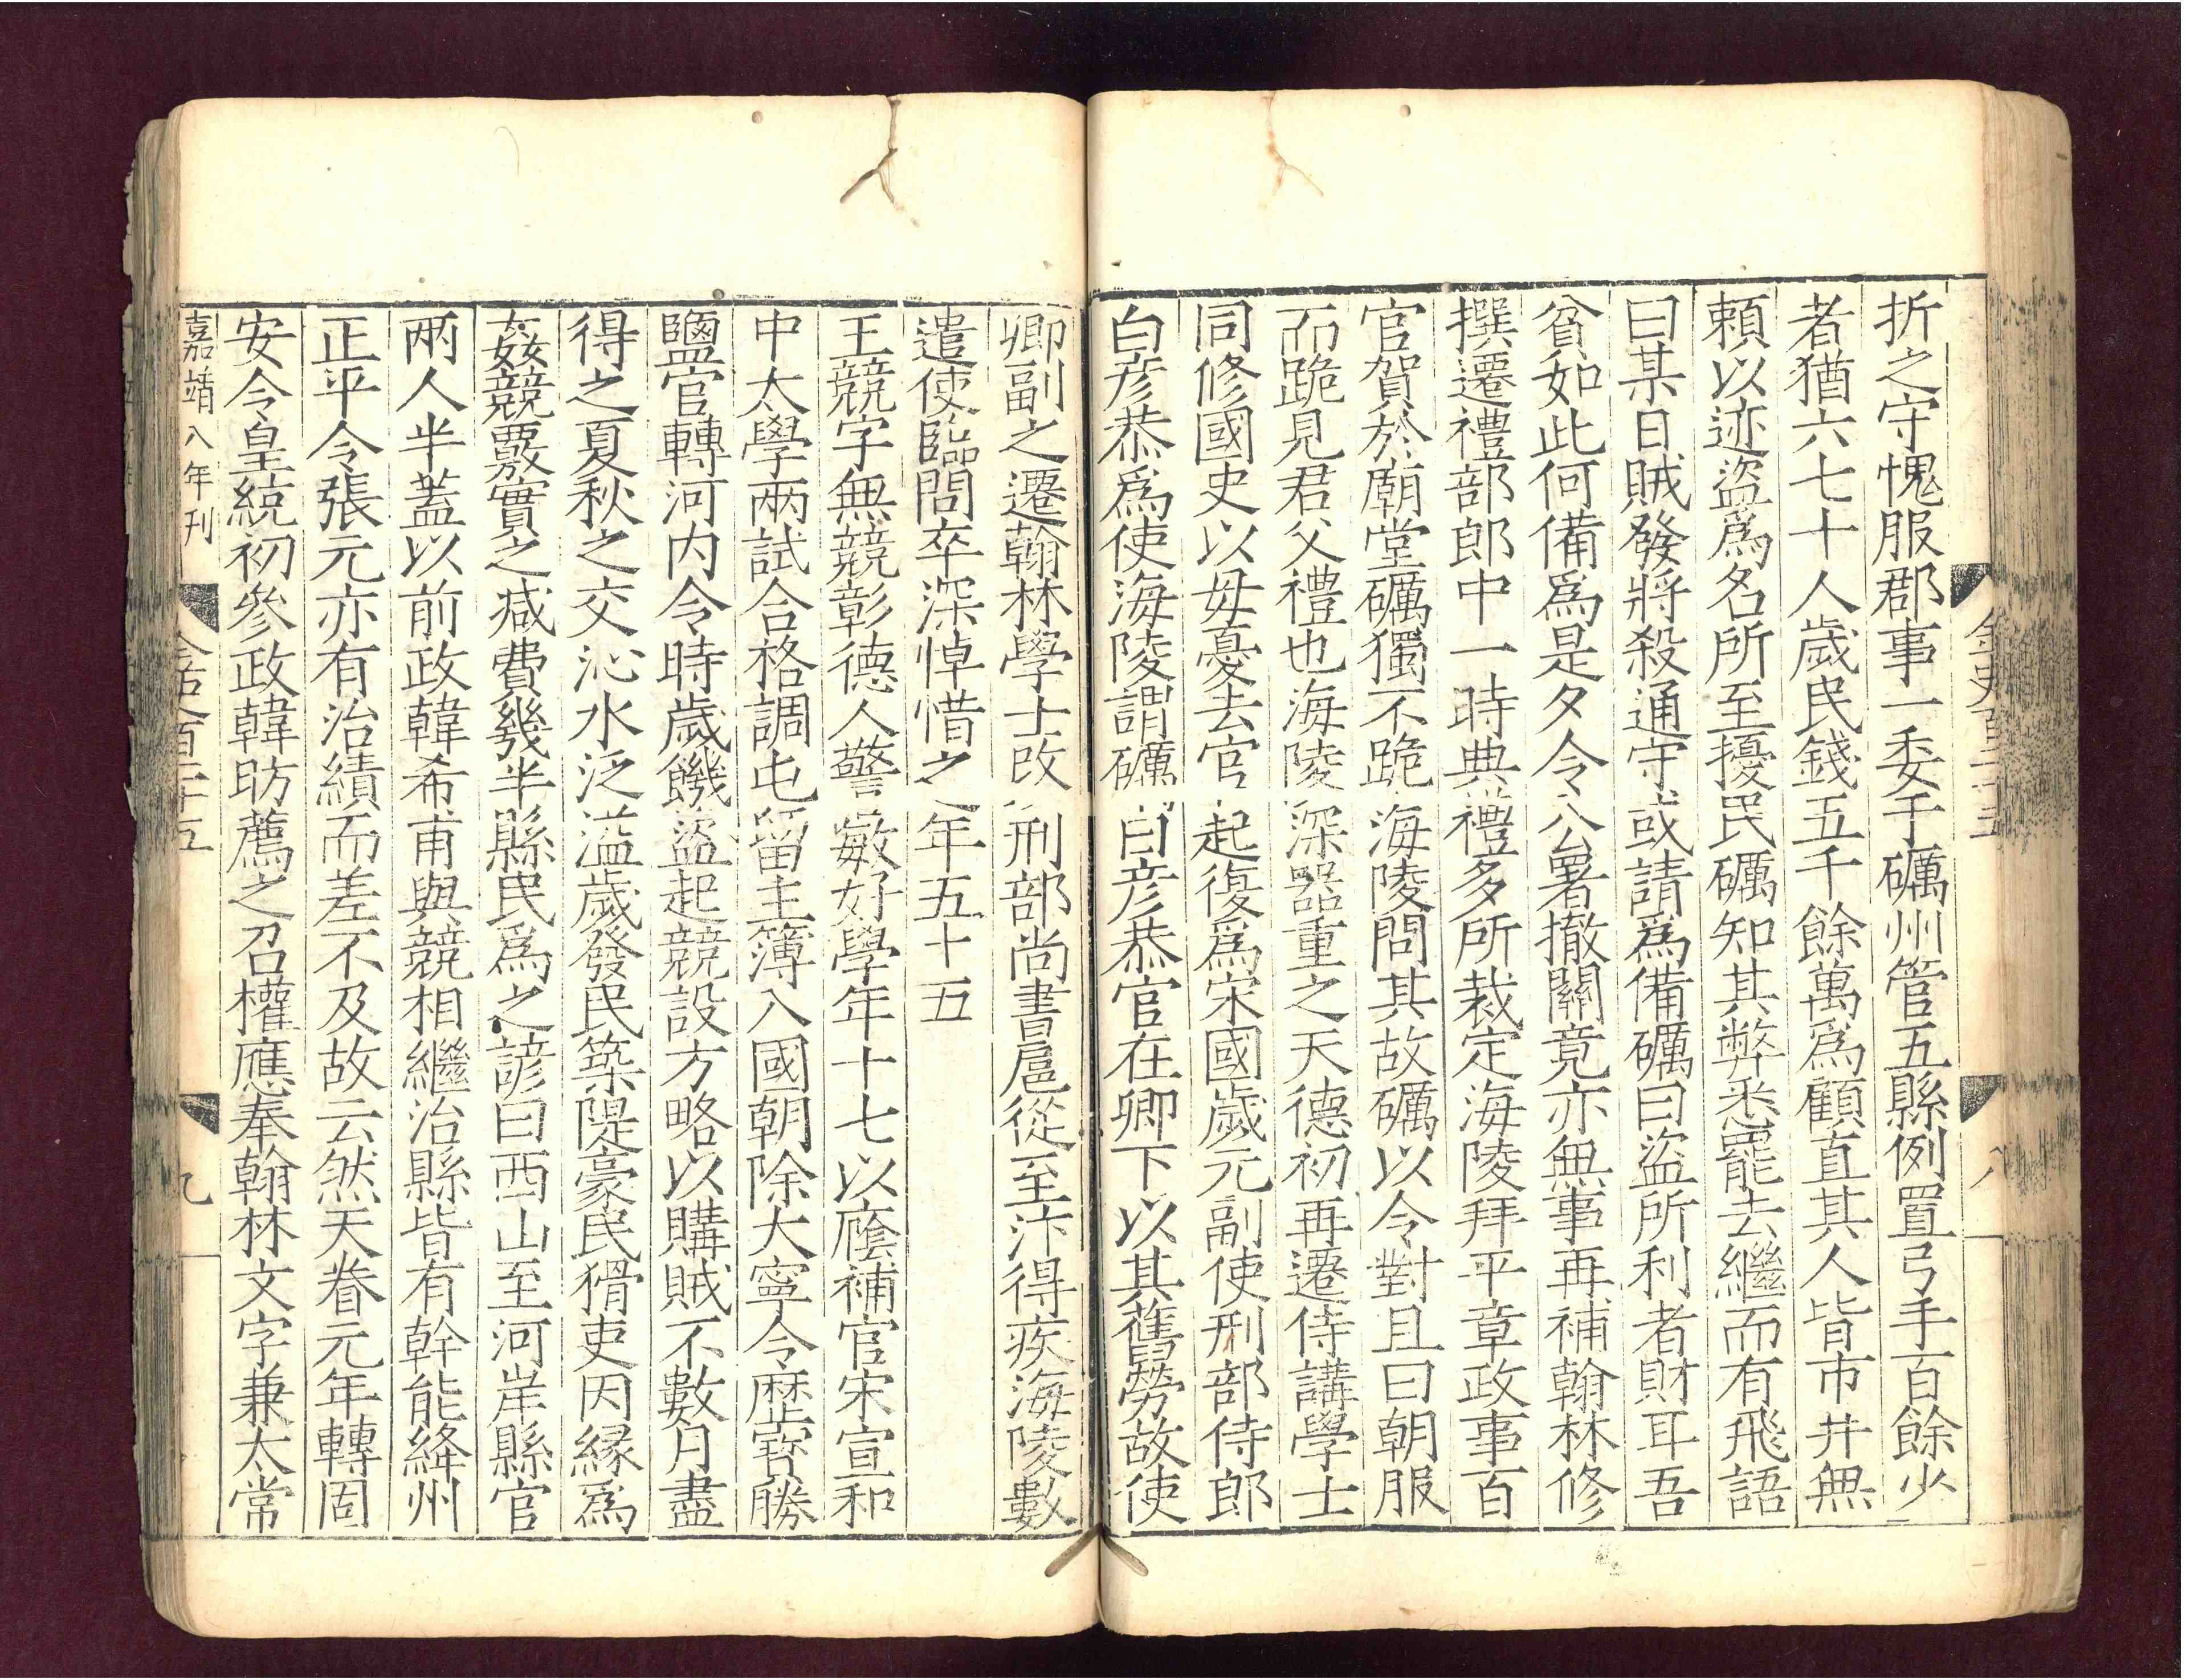 折之守愧服郡事一委于礪州管五縣例置弓手百餘少
者猶六七十人歲民錢五千餘萬爲顧直其人皆市井無
頼以迹盜爲名所至擾民礪知其弊悉罷去繼而有飛語
曰某日賊發將殺通守或請爲備礪曰盜所利者財耳吾
貧如此何備爲是夕令公署撤關竟亦無事再補翰林修
撰遷禮部郎中一時典禮多所裁定海陵拜平章政事百
官賀於廟堂礪獨不跪海陵問其故礪以令對且曰朝服
而跪見君父禮也海陵深器重之天德初再遷侍講學士
同修國史以毋憂去官起復爲宋國歲元副使刑部侍郎
白彦恭爲使海陵謂礪曰彦恭官在卿下以其舊勞故使
卿副之遷翰林學士改刑部尚書扈從至汴得疾海陵數
遣使臨問卒深悼惜之年五十五
王競字無競彰德人警敏好學年十七以廕補官宋宣和
中太學兩試合格調屯留主簿入國朝除大寧令歷寳勝
鹽官轉河内令時歲饑盜起競設方略以購賊不數月盡
得之夏秋之交沁水泛溢歲發民築隄豪民猾吏因縁爲
姦競覈實之减費幾半縣民爲之諺曰西山至河岸縣官
兩人半蓋以前政韓希甫與競相繼治縣皆有幹能絳州
正平令張元亦有治績而差不及故云然天眷元年轉固
安令皇統初參政韓昉薦之召權應奉翰林文字兼太常
嘉靖八年刊
金史百二十五
九
金史百二十五
八